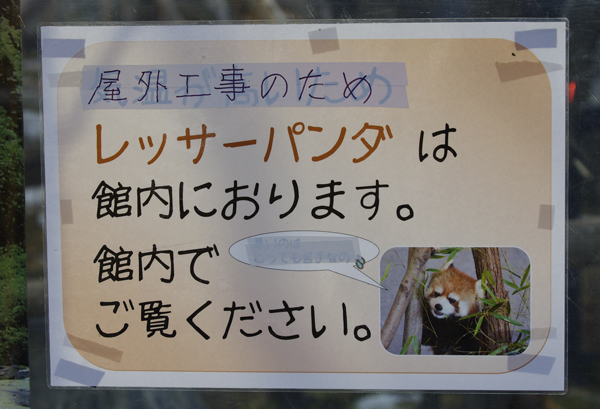 屋外工事のため
レッサーパンダ は
館内におります。
館内で
ご覧ください。